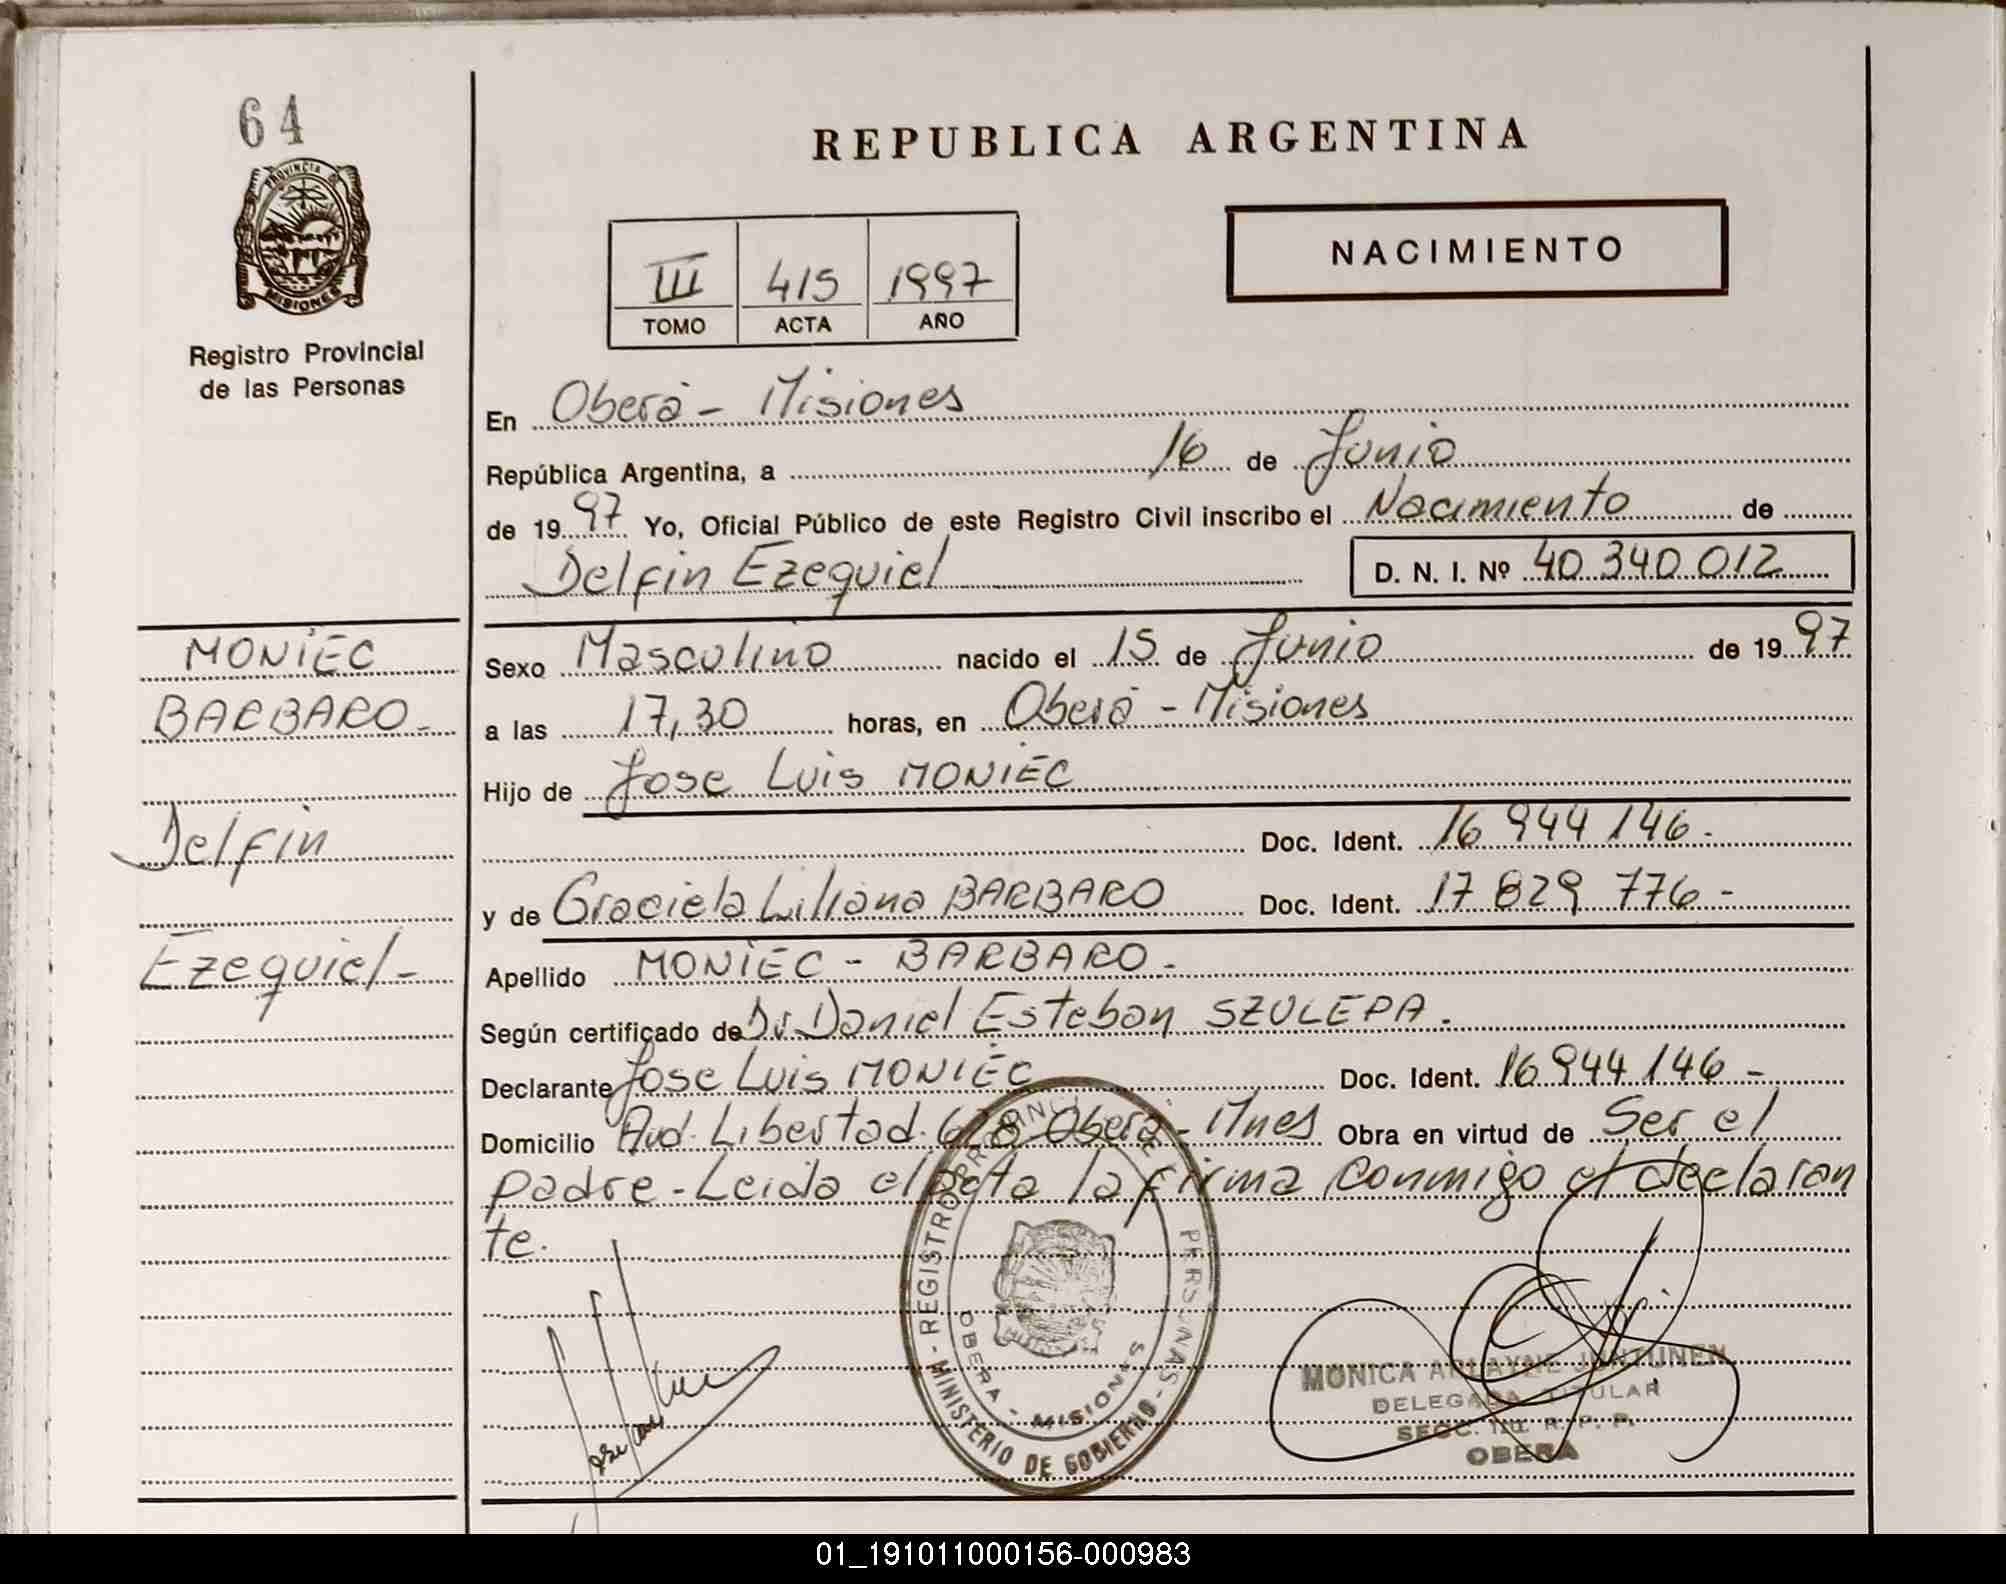 64
PROVINCIA DE
MISIONES
Registro Provincial
de las Personas
REPUBLICA ARGENTINA
III 415 1997
TOMO ACTA AÑO
NACIMIENTO
En Oberá - Misiones
República Argentina, a 16 de Junio
de 19 97 Yo, Oficial Público de este Registro Civil inscribo el Nacimiento de
Delfin Ezequiel D. N. I. Nº 40.340.012
MONIEC
BARBARO -
Delfin
Ezequiel -
Sexo Masculino nacido el 15 de Junio de 19 97
a las 17,30 horas, en Oberá - Misiones
Hijo de Jose Luis MONIEC
Doc. Ident. 16 944 146 -
y de Graciela Liliana BARBARO Doc. Ident. 17 829 776 -
Apellido MONIEC - BARBARO -
Según certificado de Dr Daniel Esteban SZULEPA.
Declarante Jose Luis MONIEC Doc. Ident. 16 944 146 -
Domicilio Avd. Libertad 628 Oberá - Mnes Obra en virtud de Ser el
padre - Leida el acta la firma conmigo el declaran
te.
REGISTRO PERSONAS - MINISTERIO DE GOBIERNO -
OBERA - MISIONES
MONICA JUNTUNEN
DELEGADA TITULAR
SECC. R. P. P.
OBERA
01_191011000156-000983